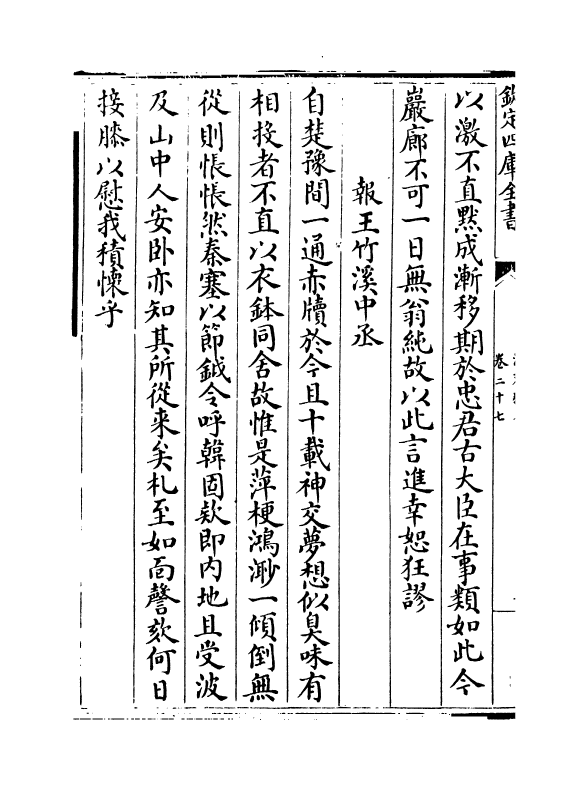 欽定四庫全書
卷二十七
以激不直黙成漸移期於忠君古大臣在事類如此今
巖廊不可一日無翁純故以此言進幸恕狂謬
報王竹溪中丞
自楚豫間一通赤牘於今且十載神交夢想似臭味有
相投者不直以衣鉢同舍故惟是萍梗鴻渺一傾倒無
從則悵悵然秦塞以節鉞令呼韓固欵即内地且受波
及山中人安卧亦知其所從来矣札至如面謦欬何日
接膝以慰我積悚乎